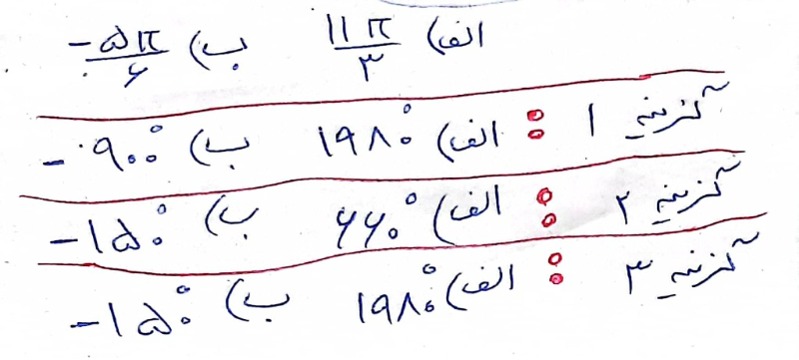 الف) ۱۱π/۳ ب) -۵π/۶
گزینه ۱ : الف) ۱۹۸۰° ب) -۹۰۰°
گزینه ۲ : الف) ۶۶۰° ب) -۱۵۰°
گزینه ۳ : الف) ۱۹۸۰° ب) -۱۵۰°